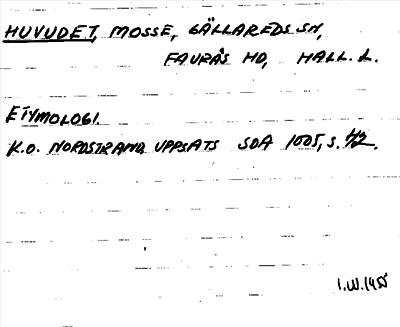 HUVUDET, MOSSE, GÄLLAREDS SN,
FAURÅS HD, HALL. L.
ETYMOLOGI.
K.O. NORDSTRAND UPPSATS SOA 1005, S. 42.
I.W. 1955